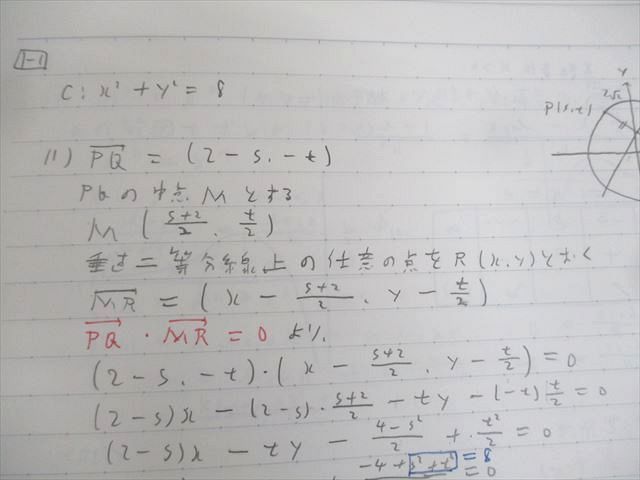 1-1
C: x² + y² = 8
(1) PQ→ = (2 - s, -t)
PQの中点Mとする
M ( (s+2)/2 , t/2 )
垂直二等分線上の任意の点をR(x,y)とおく
MR→ = ( x - (s+2)/2 , y - t/2 )
PQ→ · MR→ = 0 より、
(2 - s, -t)·( x - (s+2)/2 , y - t/2 ) = 0
(2 - s)x - (2 - s)·(s+2)/2 - ty - (-t) t/2 = 0
(2 - s)x - ty - (4 - s²)/2 + t²/2 = 0
-4 + s² + t² = 8
= 0
Y
2√2
P(s,t)